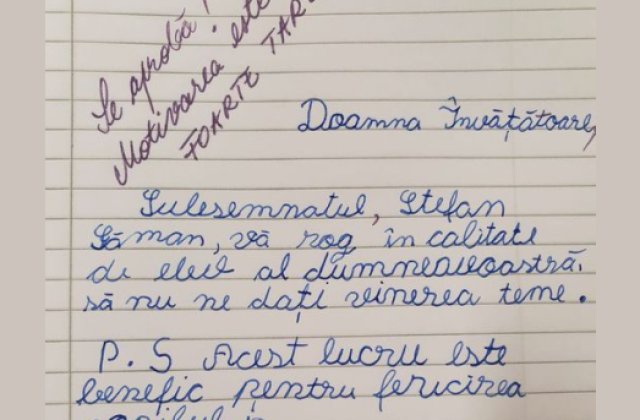 Se aprobă!
Motivarea este
FOARTE TARE
Doamna Învățătoare,
Subsemnatul, Ștefan
Șăman, vă rog în calitate
de elev al dumneavoastră,
să nu ne dați vinerea teme.
P.S Acest lucru este
benefic pentru fericirea